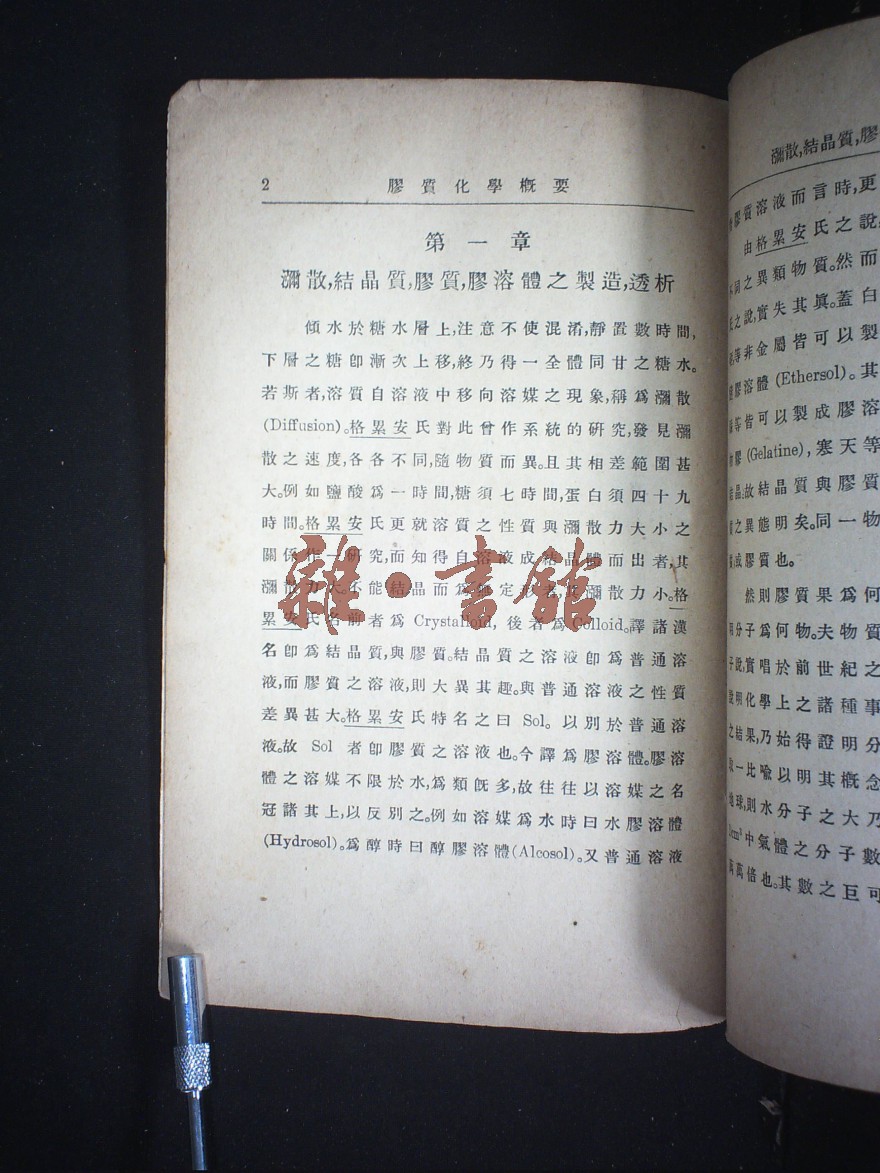 2
膠質化學概要
第一章
瀰散,結晶質,膠質,膠溶體之製造,透析
傾水於糖水層上,注意不使混淆,靜置數時間,
下層之糖卽漸次上移,終乃得一全體同甘之糖水。
若斯者,溶質自溶液中移向溶媒之現象,稱爲瀰散
(Diffusion)。格累安氏對此曾作系統的硏究,發見瀰
散之速度,各各不同,隨物質而異。且其相差範圍甚
大。例如鹽酸爲一時間,糖須七時間,蛋白須四十九
時間。格累安氏更就溶質之性質與瀰散力大小之
關係作一硏究,而知得自溶液成結晶體而出者,其
瀰散力大。不能結晶而爲無定形者,其瀰散力小。格
累安氏名前者爲 Crystalloid, 後者爲 Colloid。譯諸漢
名卽爲結晶質,與膠質。結晶質之溶液卽爲普通溶
液,而膠質之溶液,則大異其趣。與普通溶液之性質
差異甚大。格累安氏特名之曰 Sol。以別於普通溶
液。故 Sol 者卽膠質之溶液也。今譯爲膠溶體。膠溶
體之溶媒不限於水,爲類旣多,故往往以溶媒之名
冠諸其上,以反別之。例如溶媒爲水時曰水膠溶體
(Hydrosol)。爲醇時曰醇膠溶體(Alcosol)。又普通溶液
雜·書館
瀰散,結晶質,膠
膠質溶液而言時,更
由格累安氏之說,
不同之異類物質。然而
氏之說,實失其眞。蓋白
等非金屬皆可以製
膠溶體 (Ethersol)。其
等皆可以製成膠溶
膠 (Gelatine), 寒天等
結晶;故結晶質與膠質
質之異態明矣。同一物
成膠質也。
然則膠質果爲何
明分子爲何物。夫物質
子說,實唱於前世紀之
證明化學上之諸種事
之結果,乃始得證明分
取一比喩以明其概念
地球,則水分子之大乃
1cm³ 中氣體之分子數
萬萬倍也。其數之巨可